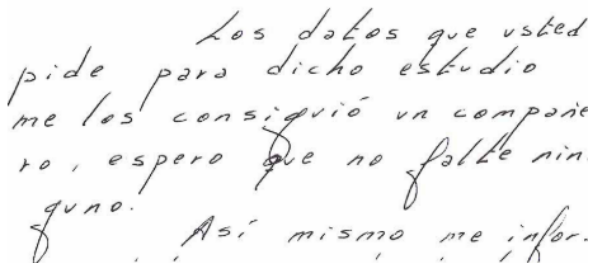 Los datos que usted
pide para dicho estudio
me los consiguió un compañe
ro, espero que no falte nin.
guno.
Así mismo me infor.